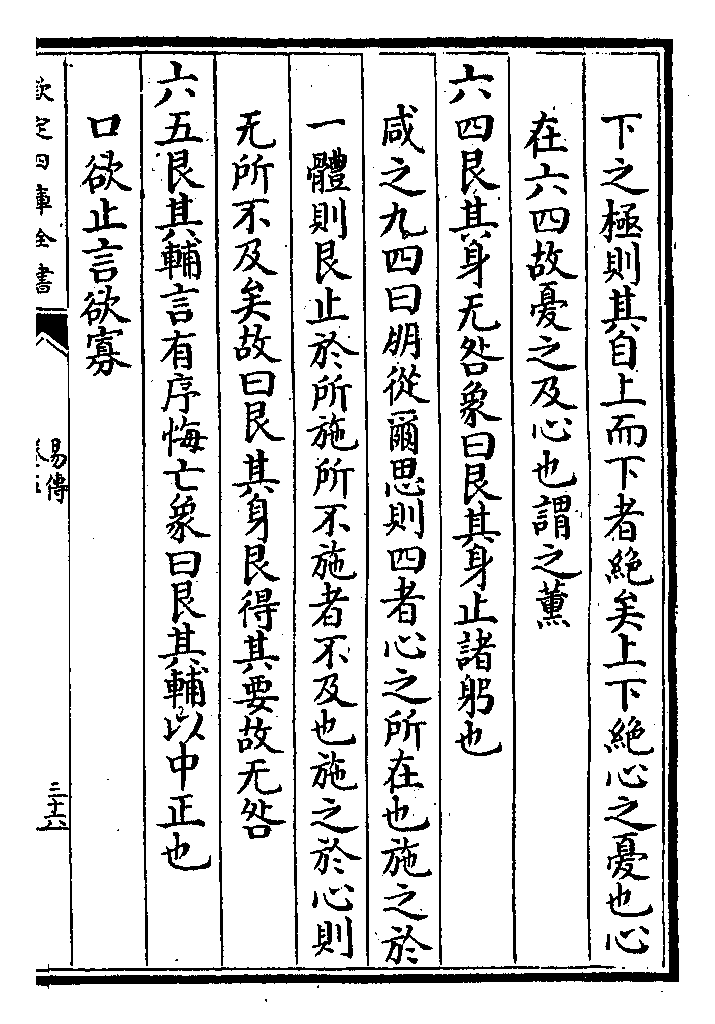 下之極則其自上而下者絶矣上下絶心之憂也心
在六四故憂之及心也謂之薰
六四艮其身无咎象曰艮其身止諸躬也
咸之九四曰朋從爾思則四者心之所在也施之於
一體則艮止於所施所不施者不及也施之於心則
无所不及矣故曰艮其身艮得其要故无咎
六五艮其輔言有序悔亡象曰艮其輔以中正也
口欲止言欲寡
欽定四庫全書
易傳
三十六